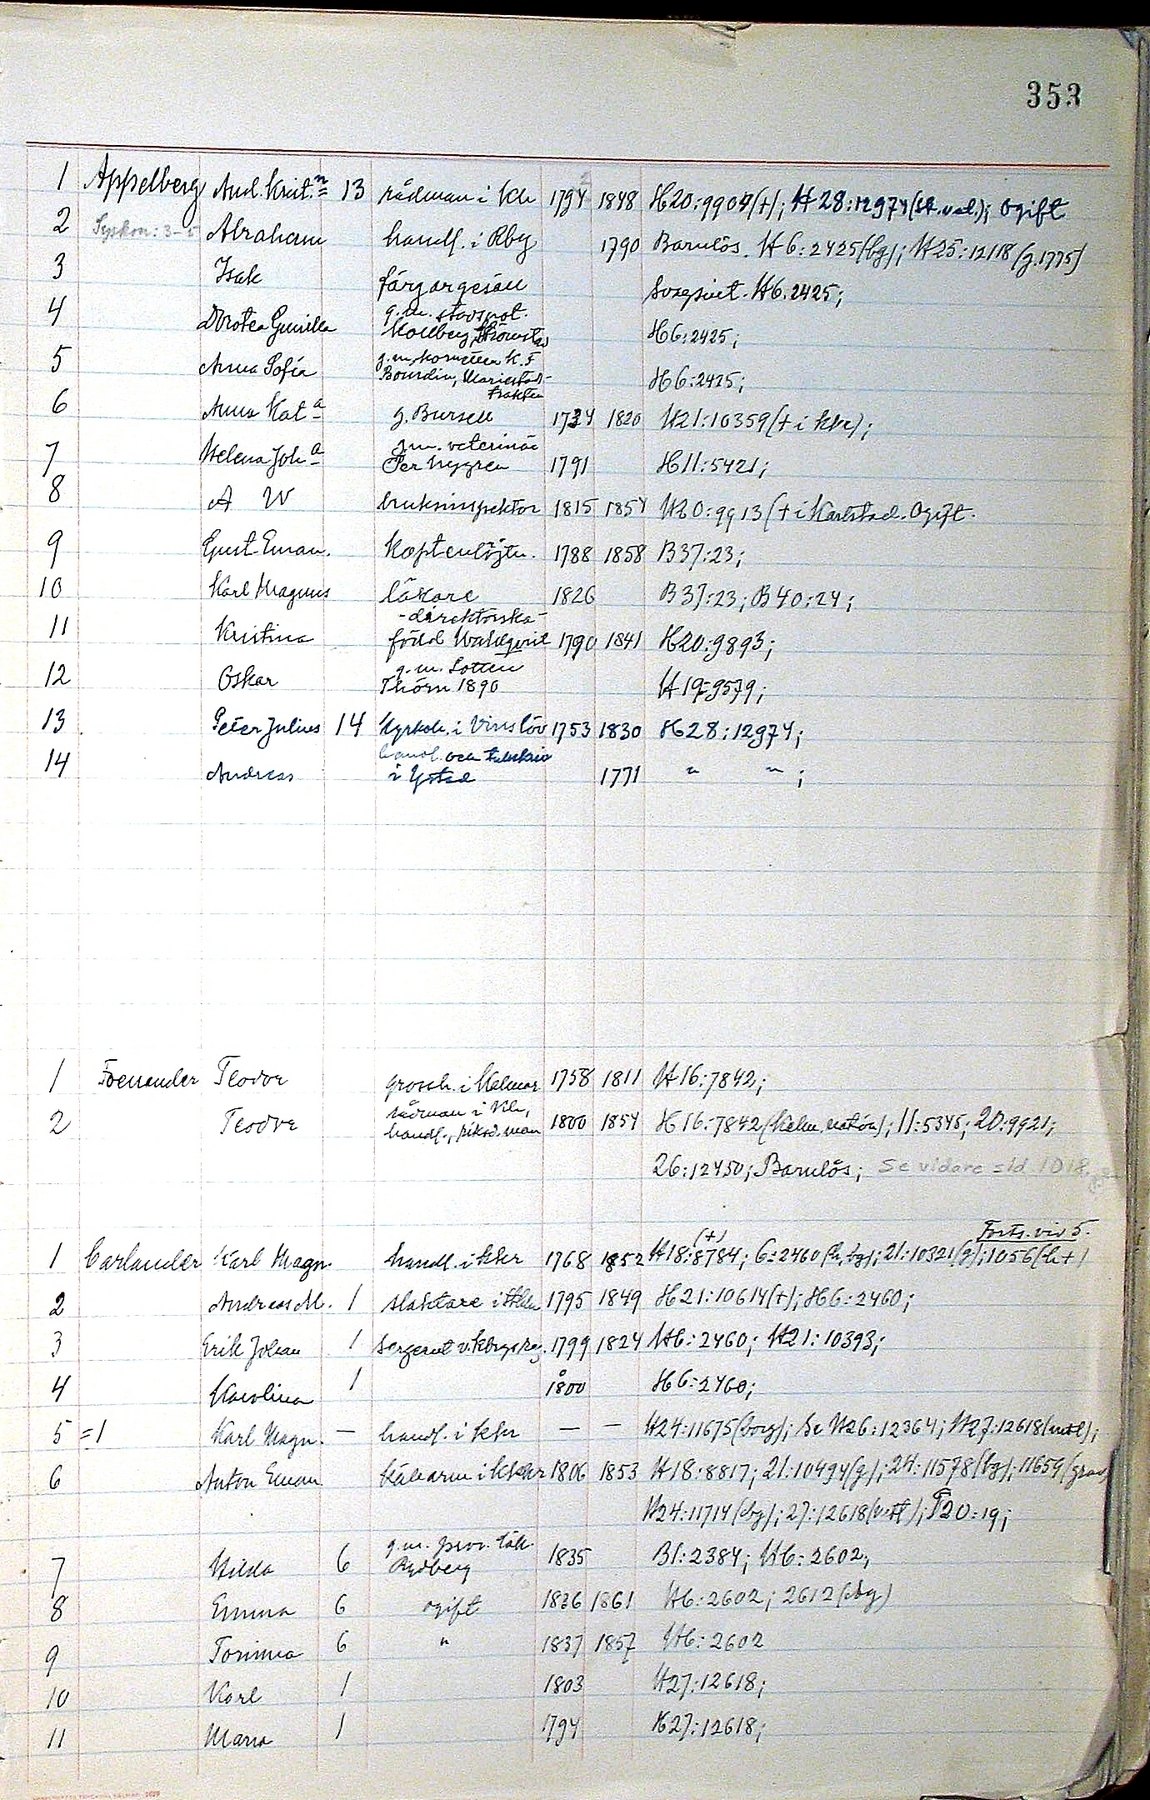 353
1 Appelberg And. Krist.n 13 rådman i Kh 1794 1848 H20:9904(+); H28:12974(st. val.); ogift
2 Syskon: 3-5 Abraham handl. i Rby 1790 Barnlös. H6:2425(bg); H25:12118(g.1775)
3 Isak färgargesäll H6:2425;
4 Dorotea Gunilla g.m. Kollberg, H6:2425;
5 Anna Sofia g.m. kornetten K.F. Bourdin, Mariestads-trakten H6:2425;
6 Anna Kat a g. Bursell 1734 1820 H21:10359(+ i khr);
7 Helena Joh a g.m. veterinär Per Nygren 1791 H11:5421;
8 A W bruksinspektor 1815 1854 H20:9913(+ i Karlstad. Ogift.
9 Gust Eman. Kaptenlöjtn. 1788 1858 B37:23;
10 Karl Magnus läkare 1826 B37:23; B40:24;
11 Kristina -direktörska- född Wahlqvist 1790 1841 H20:9893;
12 Oskar g.m. Lotten Thörn 1890 H19:9579;
13 Peter Julius 14 Kyrkoh. i Vinslöv 1753 1830 H28:12974;
14 Andreas handl. och fabrikör i Ystad 1771 " " ;
1 Forssander Teodor grossh. i Kalmar 1758 1811 H16:7842;
2 Teodor rådman i Kh, handl., riksd.man 1800 1854 H16:7842(Kalm. nation); 11:5345; 20:9921;
26:12450; Barnlös; Se vidare sid 1018
Forts. vid 5.
1 Carlander Karl Magn. handl. i khr 1768 1852 H18:8784(+); 6:2460(h, bg); 21:10321(g); 1056(h+)
2 Andreas M. 1 slaktare i 1795 1849 H21:10614(+); H6:2460;
3 Erik Johan 1 sergeant v. Kbgs reg. 1799 1824 H6:2460; H21:10393;
4 Karolina 1 1800 H6:2460;
5 =1 Karl Magn. — handl. i khr — — H24:11675(borg); Se H26:12364; H27:12618(utl);
6 Anton Eman 1806 1853 H18:8817; 21:10494(g); 24:11578(bg); 11659(grav)
H24:11714(bg); 27:12618(utl); F20:19;
7 Hilda 6 g.m. prov. läk. Rydberg 1835 B1:2384; H6:2602;
8 Emma 6 ogift 1836 1861 H6:2602; 2612(bg)
9 6 " 1837 1857 H6:2602
10 Karl 1 1803 H27:12618;
11 Maria 1 1794 H27:12618;